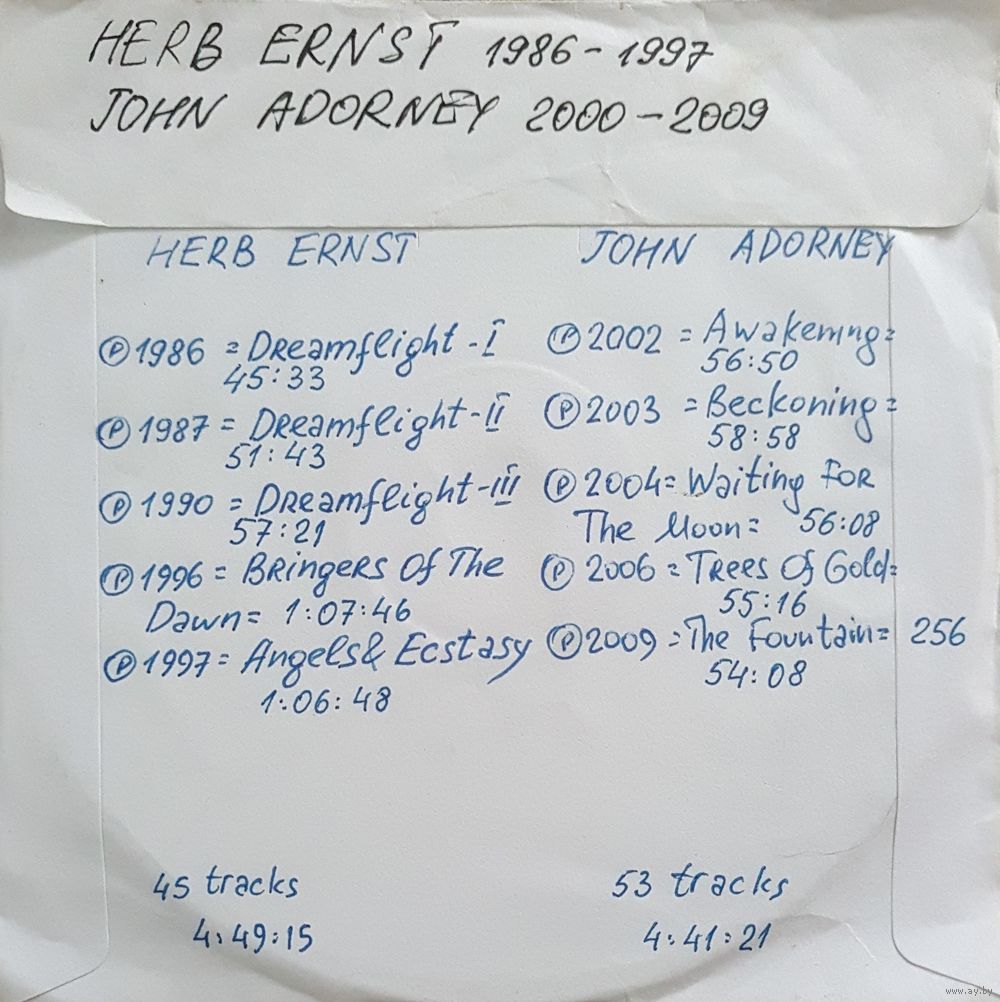 HERB ERNST 1986-1997
JOHN ADORNEY 2000-2009
HERB ERNST
Ⓟ1986 = Dreamflight-I
45:33
Ⓟ1987 = Dreamflight-II
51:43
Ⓟ1990 = Dreamflight-III
57:21
Ⓟ1996 = Bringers Of The
Dawn= 1:07:46
Ⓟ1997 = Angels& Ecstasy
1:06:48
45 tracks
4:49:15
JOHN ADORNEY
Ⓟ2002 = Awakening=
56:50
Ⓟ2003 = Beckoning=
58:58
Ⓟ2004= Waiting For
The Moon= 56:08
Ⓟ2006 = Trees Of Gold=
55:16
Ⓟ2009 = The Fountain= 256
54:08
53 tracks
4:41:21
www.ay.by